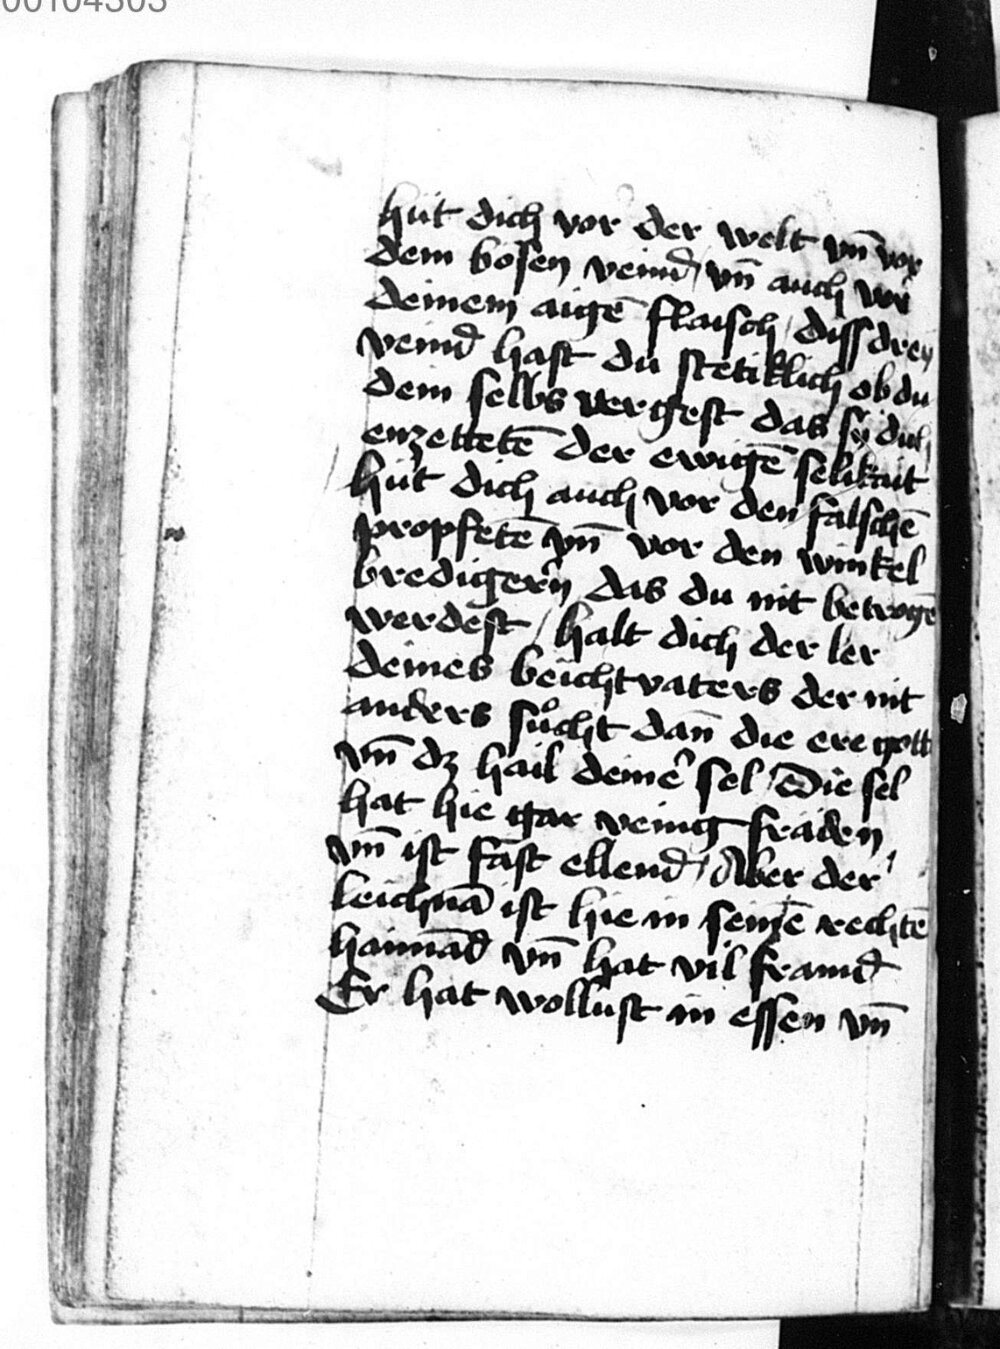 00104303
hüt dich vor der welt vn̄ vor
dem bosen veind / vn̄ auch vor
deinem aigē flaisch / diss drey
veind hast du stetiklich ob du
dein selbs vergest das sÿ dich
enzettetē der ewigē selikait
hüt dich auch vor den falschē
propfetē vn̄ vor den winkel
bredigern das du nit betrogē
werdest / halt dich der ler
deines beichtvaters der nit
anders sůcht dan̄ die ere gott
vn̄ dz hail deinē sel / Die sel
hat hie gar venig fräden
vn̄ ist fast ellend / Aber der
leichnā ist hie in seinē rechtē
haimād vn̄ hat vil fraind
Er hat wollust in essen vn̄